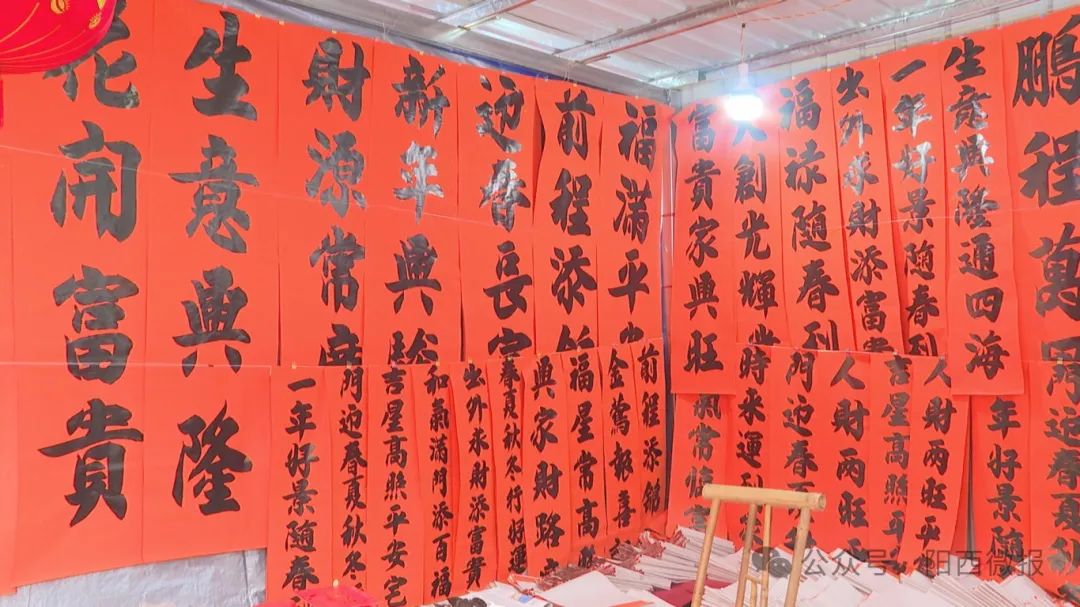 花開富貴
生意興隆
財源常
新年興
迎春長
前程添
福滿平
富貴家興旺
創光輝
福祿隨春到
出外求財添富
一年好景隨春到
生意興隆通四海
鵬程萬
一年好景隨春
門迎春夏秋冬
吉星高照平安宅
和氣滿門添百福
出外求財添富貴
春夏秋冬行好運
興家財路
福星常高
金鶯報喜
前程添錦
常
時來運到
門迎春夏
人財兩旺
吉星高照平
人財兩旺平
年好景隨
門迎春夏
公众号 · 阳西微报